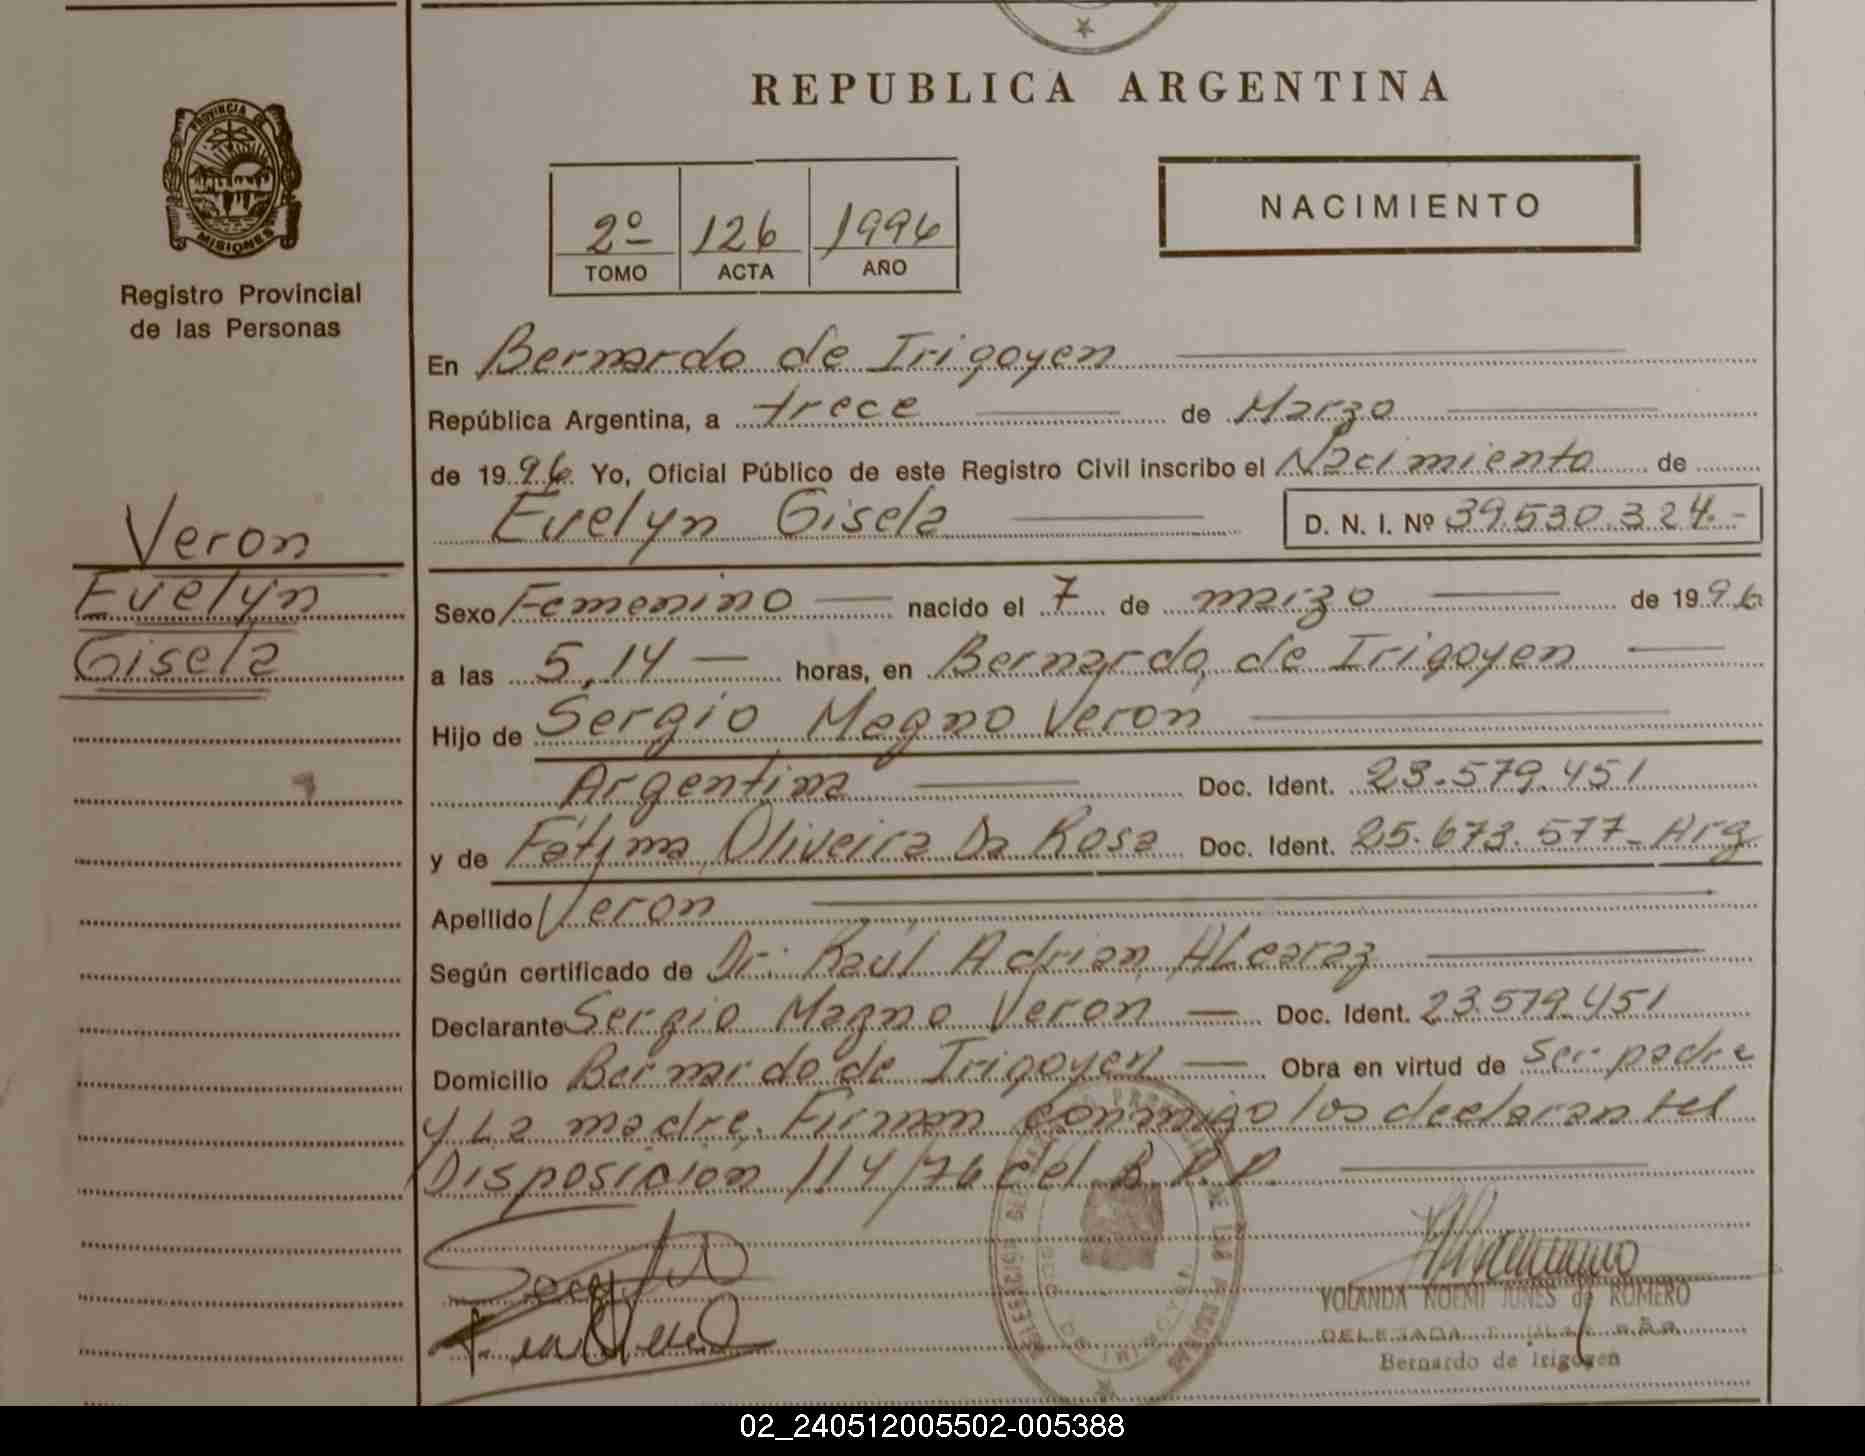 REPUBLICA ARGENTINA
PROVINCIA DE
MISIONES
Registro Provincial
de las Personas
2º 126 1996
TOMO ACTA AÑO
NACIMIENTO
En Bernardo de Irigoyen
República Argentina, a trece de Marzo
de 1996 Yo, Oficial Público de este Registro Civil inscribo el Nacimiento de
Evelyn Gisela D. N. I. Nº 39.530.324.-
Veron
Evelyn
Gisela
Sexo Femenino nacido el 7 de marzo de 1996
a las 5,14 horas, en Bernardo de Irigoyen
Hijo de Sergio Magno Veron
Argentina Doc. Ident. 23.579.451
y de Fátima Oliveira Da Rosa Doc. Ident. 25.673.577- Arg
Apellido Veron
Según certificado de Dr: Raúl Adrian ALcaraz
Declarante Sergio Magno Veron Doc. Ident. 23.579.451
Domicilio Bernardo de Irigoyen Obra en virtud de Ser padre
y La madre. Firman conmigo los declarantes
Disposición 114/76 del R.P.P.
YOLANDA NOEMI JUNES de ROMERO
DELEGADA
Bernardo de Irigoyen
02_240512005502-005388